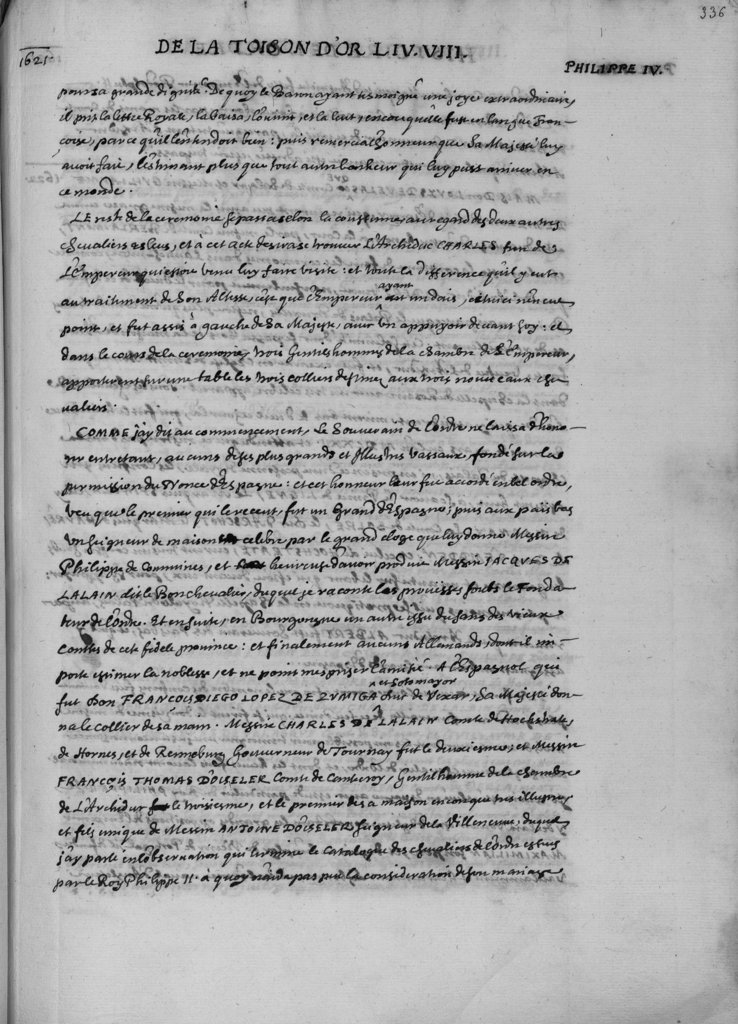 336
DE LA TOISON D'OR LIV. VIII.
1621.
PHILIPPE IV.
pour sa grande dignité. De quoy le Bann ayant tesmoigné une joye extraordinaire,
il prit la lettre Royale, la baisa, l'ouvrit, et la leut, encore qu'elle fust en langue Fran-
çoise, parce qu'il l'entendoit bien: puis remercia l'honneur que Sa Majesté luy
avoit fait, l'estimant plus que tout autre bonheur qui luy pust arriver en
ce monde.
LE reste de la ceremonie se passa selon la coustume au regard des deux autres
chevaliers esleus, et à cet acte desira se trouver l'Archiduc CHARLES frere de
L'Empereur qui estoit venu luy faire visite: et toute la difference qu'il y eut
au traitment de Son Altesse, c'est que l'Empereur ayant un dais, cetuici n'en eut
point, et fut assis à gauche de Sa Majesté, avec un appuyoir devant soy: et
dans le cours de la ceremonie, trois Gentilshommes de la chambre de l'Empereur,
apporterent sur une table les trois colliers destinez aux trois nouveaux che-
valiers.
COMME j'ay dit au commencement, Le Souverain de l'ordre ne laissa d'hono-
rer entretant, aucuns de ses plus grands et Illustres vassaux, fondé sur la
permission du Nonce d'Espagne: et cet honneur leur fut accordé en bel ordre,
veu que le premier qui le receut, fut un Grand d'Espagne; puis aux païs bas
un seigneur de maison celebre, par le grand eloge que luy donne Messire
Philippe de Commines, et heureuse d'avoir produit Messire JACQUES DE
LALAIN dit le Bon chevalier, duquel je raconte les prouesses soubs le Fonda-
teur de l'ordre. Et ensuite, en Bourgoigne un autre issu du sang des vieux
Comtes de cete fidele province: et finalement aucuns Allemands, dont il im-
porte estimer la noblesse, et ne point mespriser l'amitié. A l'Espagnol qui
fut Don FRANCOIS DIEGO LOPEZ DE ZUNIGA et Sotomayor Duc de Vexar, Sa Majesté don-
na le collier de sa main. Messire CHARLES DE LALAIN Comte de Hochstrate,
de Hornes, et de Rennebourg Gouverneur de Tournay fut le deuxiesme, et Messire
FRANÇOIS THOMAS D'OISELER Comte de Cantecroy, Gentilhomme de la chambre
de L'Archiduc le troisiesme, et le premier de sa maison encore que tres illustre,
et fils unique de Messire ANTOINE D'OISELER seigneur de la Villeneuve, duquel
j'ay parlé en l'observation qui termine le Catalogue des chevaliers de l'ordre esleus
par le Roy Philippe II. à quoy n'aida pas peu la consideration de son mariage